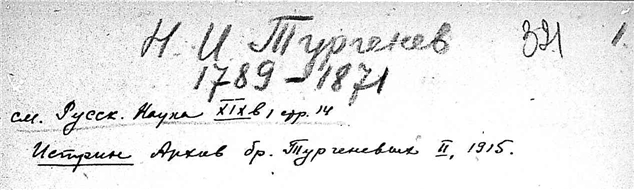 Н. И Тургенев 321 1.
1789 – 1871
см. Русск. Наука XIX в, стр. 14
Истрин Архив бр. Тургеневых II, 1915.